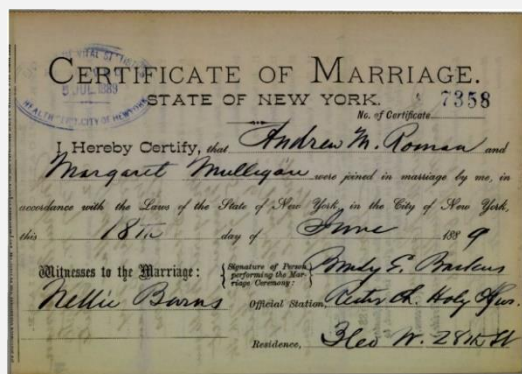 VITAL STATISTICS
5 JUL 1889
HEALTH DEPT. CITY OF NEW YORK
CERTIFICATE OF MARRIAGE.
STATE OF NEW YORK.
No. of Certificate 7358
I Hereby Certify, that Andrew M. Roman and
Margaret Mulligan were joined in marriage by me, in
accordance with the Laws of the State of New York, in the City of New York,
this 18th day of June 1889
Witnesses to the Marriage: { Signature of Person performing the Marriage Ceremony: } E.
Nellie Burns Official Station, Ch. Holy
Residence, W. 28th St